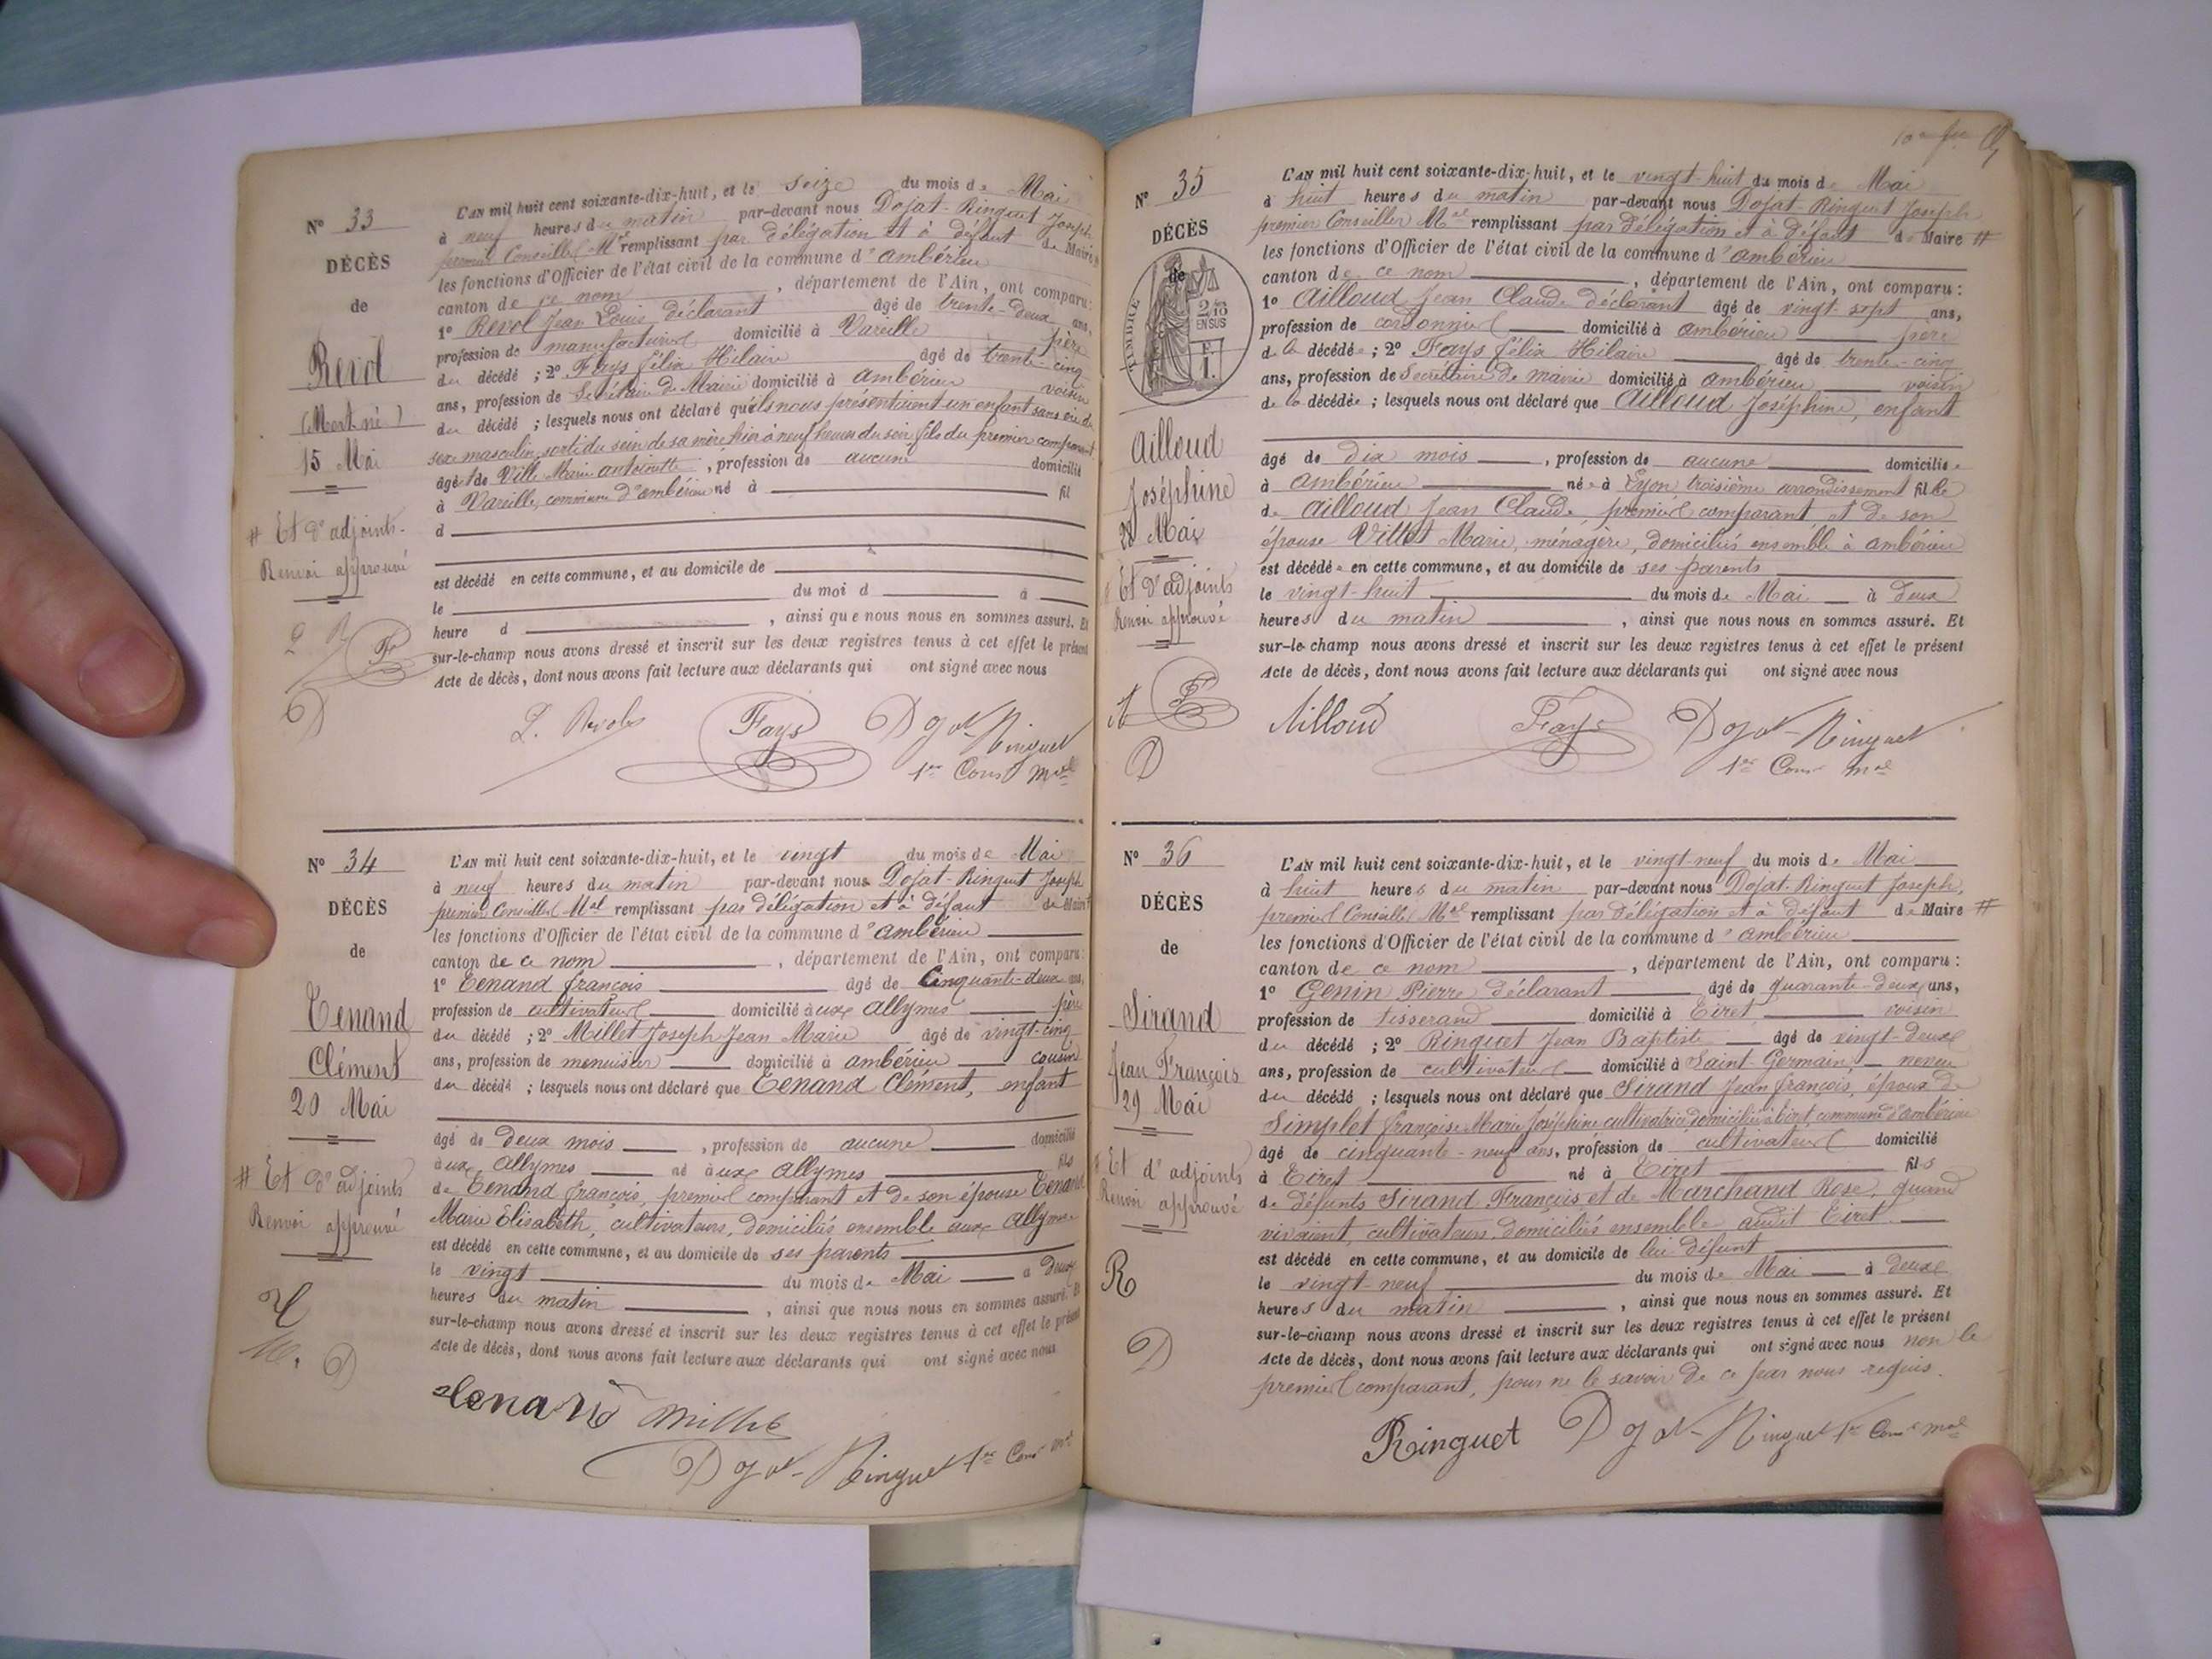 N° 33
DÉCÈS
de
Revol
(Mort né)
15 Mai
# Et d'adjoints.
Renvoi approuvé
L'AN mil huit cent soixante-dix-huit, et le seize du mois de Mai
à neuf heures du matin par-devant nous Dojat-Ringuet Joseph
premier Conseiller Mal remplissant par délégation et à défaut de Maire #
les fonctions d'Officier de l'état civil de la commune d'ambérieu
canton de ce nom, département de l'Ain, ont comparu:
1° Revol Jean Louis déclarant âgé de trente-deux ans,
profession de manufacturier domicilié à Vareille père
du décédé ; 2° Fays félix Hilaire âgé de trente-cinq
ans, profession de Secrétaire de Mairie domicilié à ambérieu voisin
du décédé ; lesquels nous ont déclaré qu'ils nous présentaient un enfant sans vie du
sexe masculin, sorti du sein de sa mère hier à neuf heures du soir, fils du premier comparant
âgé de Ville Marie antoinette, profession de aucune domicilié
à Vareille, commune d'ambérieu né à fil
d
est décédé en cette commune, et au domicile de
le du moi d à
heure d , ainsi que nous nous en sommes assuré. Et
sur-le-champ nous avons dressé et inscrit sur les deux registres tenus à cet effet le présent
Acte de décès, dont nous avons fait lecture aux déclarants qui ont signé avec nous
Fays Dojat-Ringuet
1er Cons mal
N° 34
DÉCÈS
de
Tenand
Clément
20 Mai
# Et d'adjoints
Renvoi approuvé
L'AN mil huit cent soixante-dix-huit, et le vingt du mois de Mai
à neuf heures du matin par-devant nous Dojat-Ringuet Joseph
premier Conseiller Mal remplissant par délégation et à défaut de Maire #
les fonctions d'Officier de l'état civil de la commune d'ambérieu
canton de ce nom, département de l'Ain, ont comparu:
1° Tenand françois âgé de Cinquante-deux ans,
profession de cultivateur domicilié aux allymes père
du décédé ; 2° Millet Joseph Jean Marie âgé de vingt-cinq
ans, profession de menuisier domicilié à ambérieu cousin
du décédé ; lesquels nous ont déclaré que Tenand Clément, enfant
âgé de deux mois, profession de aucune domicilié
aux allymes né aux allymes fils
de Tenand françois, premier comparant et de son épouse Tenand
Marie Elisabeth, cultivateurs, domiciliés ensemble aux allymes
est décédé en cette commune, et au domicile de ses parents
le vingt du mois de Mai à deux
heures du matin, ainsi que nous nous en sommes assuré. Et
sur-le-champ nous avons dressé et inscrit sur les deux registres tenus à cet effet le présent
Acte de décès, dont nous avons fait lecture aux déclarants qui ont signé avec nous
tenand Millet
Dojat-Ringuet 1er Cons mal
N° 35
DÉCÈS
de
TIMBRE
EN SUS
Ailloud
Joséphine
28 Mai
# Et d'adjoints
Renvoi approuvé
L'AN mil huit cent soixante-dix-huit, et le vingt-huit du mois de Mai
à huit heures du matin par-devant nous Dojat-Ringuet Joseph
premier Conseiller Mal remplissant par délégation et à défaut de Maire #
les fonctions d'Officier de l'état civil de la commune d'ambérieu
canton de ce nom, département de l'Ain, ont comparu:
1° Ailloud Jean Claude déclarant âgé de vingt-sept ans,
profession de cordonnier domicilié à ambérieu père
de la décédée ; 2° Fays félix Hilaire âgé de trente-cinq
ans, profession de Secrétaire de mairie domicilié à ambérieu voisin
de la décédée ; lesquels nous ont déclaré que Ailloud Joséphine, enfant
âgé de dix mois, profession de aucune domiciliée
à ambérieu née à Lyon, troisième arrondissement fille
de Ailloud Jean Claude, premier comparant et de son
épouse Villet Marie, ménagère, domiciliés ensemble à ambérieu
est décédée en cette commune, et au domicile de ses parents
le vingt-huit du mois de Mai à deux
heures du matin, ainsi que nous nous en sommes assuré. Et
sur-le-champ nous avons dressé et inscrit sur les deux registres tenus à cet effet le présent
Acte de décès, dont nous avons fait lecture aux déclarants qui ont signé avec nous
Ailloud Fays Dojat-Ringuet
1er Cons mal
N° 36
DÉCÈS
de
Sirand
Jean François
29 Mai
# Et d'adjoints
Renvoi approuvé
L'AN mil huit cent soixante-dix-huit, et le vingt-neuf du mois de Mai
à huit heures du matin par-devant nous Dojat-Ringuet Joseph,
premier Conseiller Mal remplissant par délégation et à défaut de Maire #
les fonctions d'Officier de l'état civil de la commune d'ambérieu
canton de ce nom, département de l'Ain, ont comparu:
1° Genin Pierre déclarant âgé de quarante-deux ans,
profession de tisserand domicilié à Tiret voisin
du décédé ; 2° Ringuet Jean Baptiste âgé de vingt-deux
ans, profession de cultivateur domicilié à Saint Germain neveu
du décédé ; lesquels nous ont déclaré que Sirand Jean françois, époux de
Simplet françoise Marie Joséphine cultivatrice domiciliée à Tiret, commune d'ambérieu
âgé de cinquante-neuf ans, profession de cultivateur domicilié
à Tiret né à Tiret fils
de défunts Sirand François et de Marchand Rose, quand
vivaient, cultivateurs, domiciliés ensemble audit Tiret
est décédé en cette commune, et au domicile de lui défunt
le vingt-neuf du mois de Mai à deux
heures du matin, ainsi que nous nous en sommes assuré. Et
sur-le-champ nous avons dressé et inscrit sur les deux registres tenus à cet effet le présent
Acte de décès, dont nous avons fait lecture aux déclarants qui ont signé avec nous non le
premier comparant, pour ne le savoir de ce par nous requis.
Ringuet Dojat-Ringuet 1er Cons mal